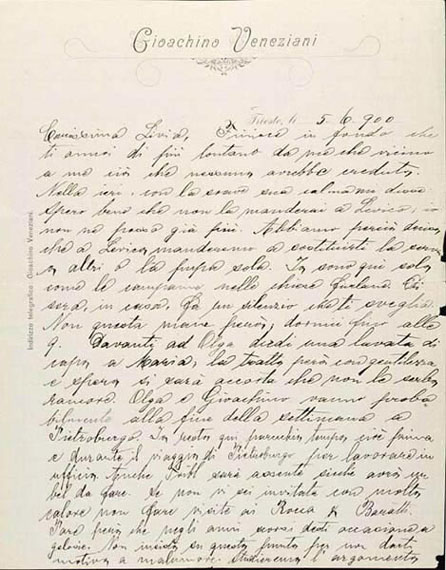 Gioachino Veneziani
Trieste, li 5.6.900
Carissima Livia, Finisce in fondo che
ti amai di più lontano da me che vicino
a me ciò che nessuno avrebbe creduto.
Nella ieri con la sua calma mi disse
Spero bene che non la manderai a Levico; io
non ne posso già più. Abbiamo perciò deciso
che a Levico manderemo a sostituirla la
o altri o la sola. Io sono qui solo
come le campane nelle chiese
sera, in casa. Fa un silenzio che ti sveglia.
Non questa mane però; dormii fino alle
9. Davanti ad Olga diedi una lavata di
capo a Maria; la trattò però con gentilezza
e spero si sarà accorta che non le serbo
rancore. Olga e Gioachino vanno proba
bilmente alla fine della settimana a
Pietroburgo. Io resto qui parecchio tempo cioè prima
e durante il viaggio di Pietroburgo per lavorare in
ufficio. Anche sarà assente sicché avrò un
bel da fare. Se non vi sei invitata con molto
calore non fare visite ai Rocca &
Pare però che negli anni scorsi desti occasione a
gelosie. Non insisto su questo punto per non darti
motivo a malumore. l'argomento
Indirizzo telegrafico: Gioachino Veneziani